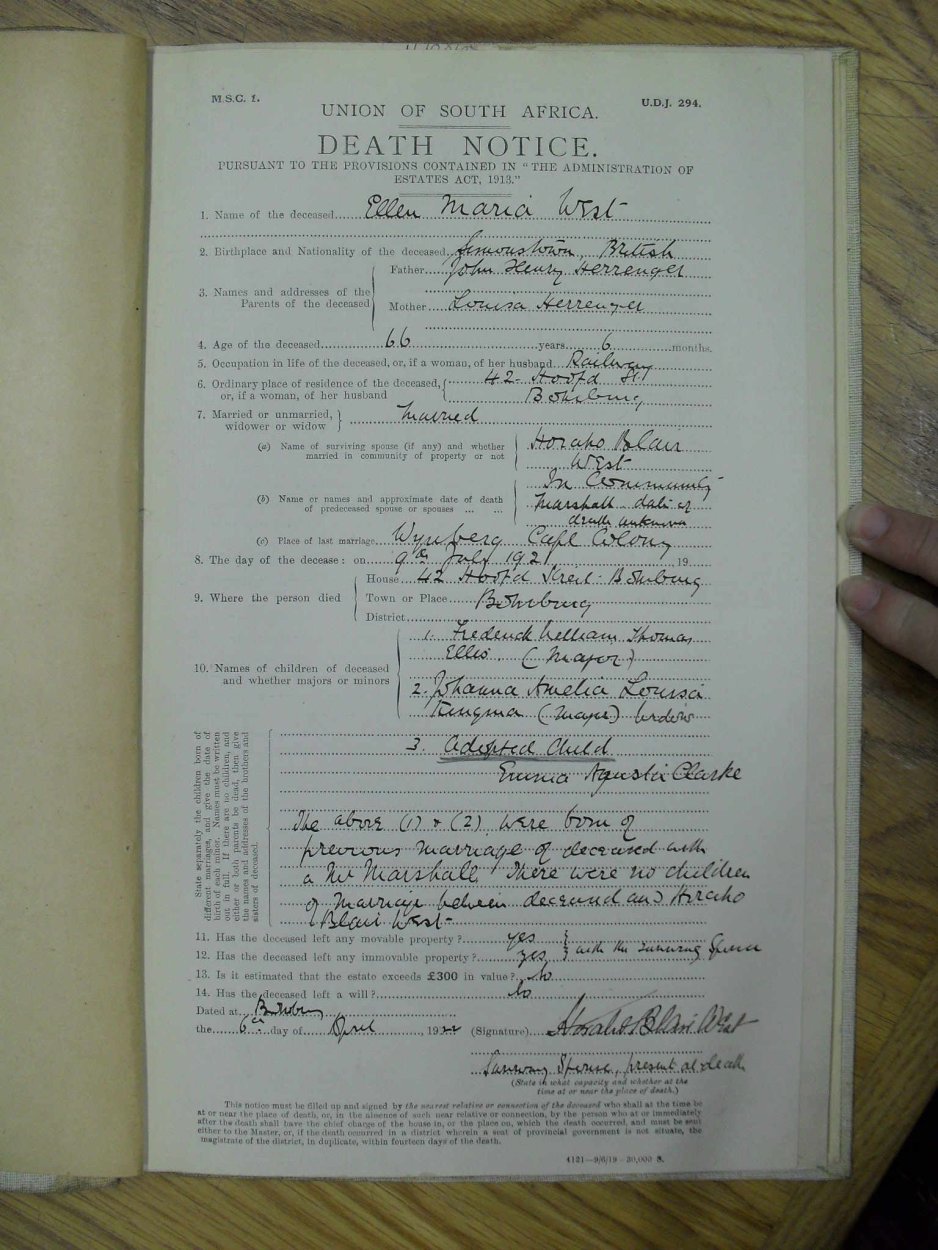 M.S.C. 1.
U.D.J. 294.
UNION OF SOUTH AFRICA.
DEATH NOTICE.
PURSUANT TO THE PROVISIONS CONTAINED IN "THE ADMINISTRATION OF
ESTATES ACT, 1913."
1. Name of the deceased Ellen Maria West
2. Birthplace and Nationality of the deceased Simonstown, British
3. Names and addresses of the Parents of the deceased
Father John Henry Herrenger
Mother Louisa Herrenger
4. Age of the deceased 66 years 6 months.
5. Occupation in life of the deceased, or, if a woman, of her husband Railway
6. Ordinary place of residence of the deceased, or, if a woman, of her husband
42 Hoofd St
7. Married or unmarried, widower or widow
Married
(a) Name of surviving spouse (if any) and whether married in community of property or not
Horatio Blair
West
In Community
(b) Name or names and approximate date of death of predeceased spouse or spouses ... ...
Marshall - date of
death unknown
(c) Place of last marriage Wynberg Cape Colony
8. The day of the decease: on 9th July 1921 19
9. Where the person died
House 42 Hoofd Street
Town or Place
District
10. Names of children of deceased and whether majors or minors
1. Frederick William Thomas
Ellis (Major)
2. Johanna Amelia Louisa
Kingma (Major) widow
3. Adopted Child
Emma Agusta Clarke
State separately the children born of
different marriages, and give the date of
birth of each minor. Names must be written
out in full. If there are no children, and
either or both parents be dead, then give
the names and addresses of the brothers and
sisters of deceased.
The above (1) & (2) were born of
previous marriage of deceased with
a Mr Marshall There were no children
of marriage between deceased and Horatio
Blair West -
11. Has the deceased left any movable property? yes
12. Has the deceased left any immovable property? yes } with the surviving Spouse
13. Is it estimated that the estate exceeds £300 in value? No
14. Has the deceased left a will? No
Dated at
the 6th day of April, 1922 (Signature) Horatio Blair West
Surviving Spouse, present at death
(State in what capacity and whether at the
time at or near the place of death.)
This notice must be filled up and signed by the nearest relative or connection of the deceased who shall at the time be
at or near the place of death, or, in the absence of such near relative or connection, by the person who at or immediately
after the death shall have the chief charge of the house in, or the place on, which the death occurred, and must be sent
either to the Master, or, if the death occurred in a district wherein a seat of provincial government is not situate, the
magistrate of the district, in duplicate, within fourteen days of the death.
4121—9/6/19—30,000 S.